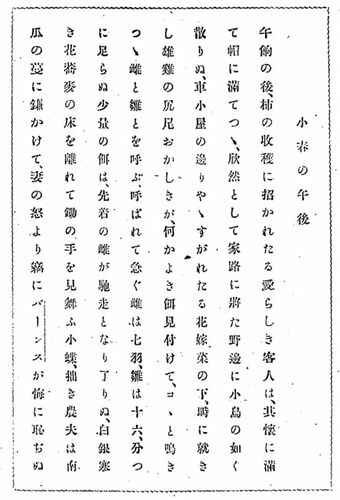 小春の午後
午餉の後、柿の收穫に招かれたる愛らしき客人は、其懷に滿
て帽に滿てつゝ、欣然として家路に將た野邊に小鳥の如く
散りぬ、車小屋の邊りやゝすがれたる花嫁菜の下、塒に就き
し雄雞の尻尾おかしきが、何かよき餌見付けて、コヽと鳴き
つゝ雌と雛とを呼ぶ、呼ばれて急ぐ雌は七羽、雛は十六、分つ
に足らぬ少量の餌は、先着の雌が馳走となり了りぬ、白銀寒
き花蕎麥の床を離れて鋤の手を見舞ふ小蝶、拙き農夫は南
瓜の蔓に鎌かけて、妻の怒より竊にバーンスが悔に恥ぢぬ